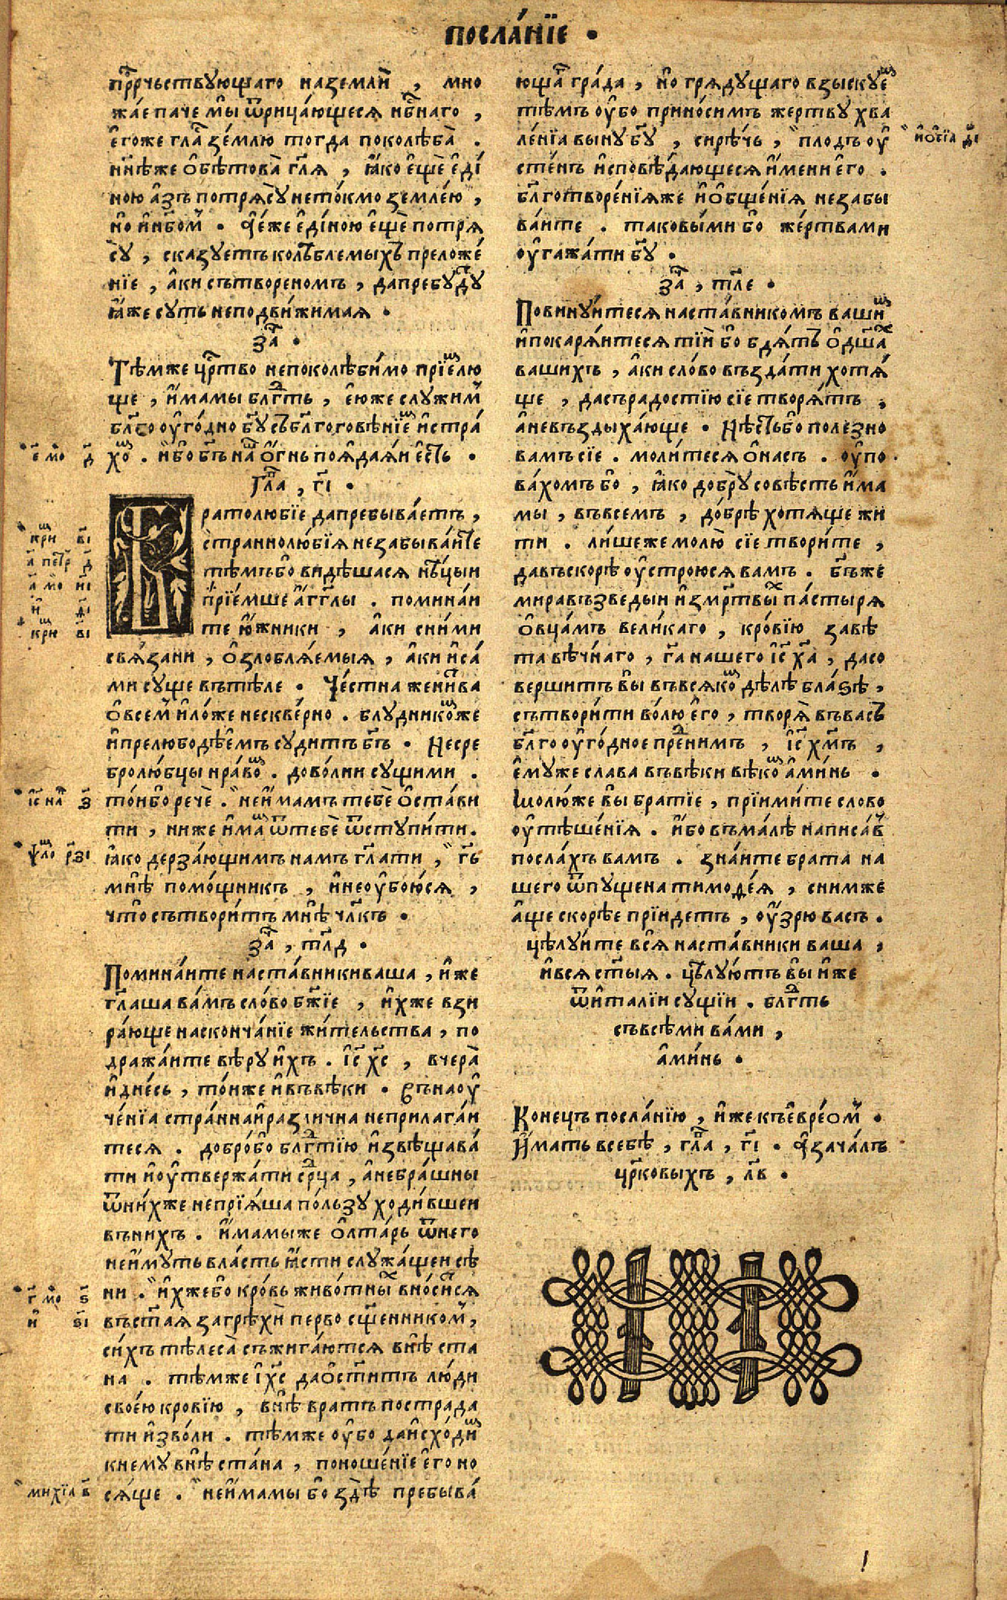 посла́нїе .
пр҃рчьствующаго наземлѝ , мно
жа́е паче мы̀ ѿрица́ющеся нб҃наго ,
е҆гоже гла҃ зе́млю тогда поколѣ̀ба .
нн҃ѣже ѻ҆бѣтова̀ гл҃я , ꙗ҆ко е҆щѐ е҆ді
ною а҆зъ потрясꙋ̀ нето́кмо зе́млею ,
но̀ и҆ нб҃ом . а҆ е҆́же е҆ди́ною е҆щѐ потря
сꙋ̀ , сказꙋетъ колѣблемыхъ преложе́
нїе , а҆ки сътвореномъ , дапребꙋ́дꙋ
ꙗ҆́же сꙋть неподви́жимая .
за҃ .
Тѣ́мже цр҃тво непоколѣби́мо прїе́млю
ще , и҆́мамы блг҃ть , е҆юже слꙋжим
блг҃о ѹ҆го́дно бг҃ꙋ съ блг҃оговѣ́нїем и҆ стра́
хом . и҆́бо бг҃ъ на҃ о҆́гнь поѧда́ѧи е҆сть .
гла҃ , г҃і .
Братолюбїе дапребыва́етъ ,
страннолю́бїя незабыва́ите
тѣ́мъ бо видѣшася нѣ́цыи
прїе́мше а҆́гг҃лы . помина́и
те ю҆́жники , а҆ки сни́ми
свя́зани , ѻ҆злобля́емыя , а҆ки и҆са́
ми сꙋще вътѣле . Че́стна жени́тва
ѻ҆всем и҆ ло́же нескве́рно . блꙋднико́мже
и҆ прелюбодѣ́емъ сꙋдитъ бг҃ъ . Несре
бролю́бцы нра́вом . дово́лни сꙋщими .
то́и бо речѐ . неи҆́мамъ тебѐ ѻ҆ста́ви
ти , ниже и҆́мамъ ѿтебѐ ѿстꙋпи́ти .
ꙗ҆ко дерза́ющимъ намъ гл҃ати , гь҃
мнѣ̀ помо́щникъ , и҆ неѹ҆бою́ся ,
что̀ сътвори́тъ мнѣ̀ чл҃къ .
за҃ , тл҃д .
Помина́ите наста́вники ваша , и҆́же
гл҃аша ва́мъ сло́во бж҃їе , и҆́хже взи
ра́юще насконча́нїе жи́тельства , по
дража́ите вѣ́рꙋ и҆́хъ . і҆с҃ хс҃ , вчера̀
и҆ дне́сь , то́иже и҆ въвѣки . Въ наѹ
че́нїѧ стра́нна и҆ различна неприлага́и
теся . добро́ бо блг҃тїю и҆звѣщава́
ти и҆ ѹ҆твержа́ти срц҃а , а҆ небра́шны
ѿни́хже непрїя́ша по́льзꙋ ходи́вшеи
въни́хъ . И҆́мамыже ѻ҆лта́рь ѿнего
неи҆́мꙋть вла́сть ꙗ҆сти слꙋжа́щеи сѣ
ни . и҆́хжебо кро́вь живо́тных вно́сится
въст҃ая загрѣхѝ перво сщ҃енником ,
си́хъ тѣлеса̀ съжига́ются внѣ̀ ста
на . тѣ́мже і҆с҃ даѻ҆ст҃итъ лю́ди
свое́ю кро́вїю , внѣ̀ вратъ пострада
ти и҆зво́ли . тѣ́мже ѹ҆бо да и҆схо́дим
кнемꙋ внѣ̀ ста́на , поноше́нїе е҆го но
ся́ще . неи҆́мамы бо здѣ̀ пребыва́
ющаго гра́да , но̀ грядꙋщаго взыскꙋем
тѣмъ ѹ҆́бо прино́симъ жертвꙋ хва
ле́нїѧ вынꙋ бг҃ꙋ , сирѣчь , плодъ ѹ҆
сте́нъ и҆сповѣ́дающеся и҆́мени е҆го .
блг҃отворе́нїяже и҆ ѻ҆бще́нїѧ незабы
ва́ите . таковы́ми бо же́ртвами
ѹ҆гажа́ти бг҃ꙋ .
за҃ , тл҃е .
Повинꙋ́итеся наста́вникомъ вашим
и҆ покаря́итеся ті́и бо бдя́тъ ѻ҆ дш҃ах
вашихъ , а҆ки сло́во въздати хотя́
ще , дасъ радостїю сїе творя́тъ ,
а҆ невъздыха́юще . Нѣ́сть бо полезно
вамъ сїе . моли́теся ѻ҆насъ . ѹ҆по
ва́хомъ бо , ꙗ҆ко добрꙋ со́вѣсть и҆́ма
мы , въвсемъ , до́брѣ хотя́ще жи
ти . ли́шеже молю̀ сїе твори́те ,
давъскорѣ ѹ҆строюся вамъ . бг҃ъже
мира възведыи и҆змр҃твых пастыря
ѻ҆вцамъ вели́каго , кро́вїю завѣ
та вѣ́чнаго , га҃ нашего і҆с҃ ха҃ , дасо
верши́тъ вы̀ въвсяком дѣ́лѣ бла́ѕѣ ,
сътвори́ти во́лю е҆го , творя̀ въвасъ
блг҃о ѹ҆го́дное пред ним , і҆с҃ хм҃ъ ,
е҆мꙋже слава въвѣ́ки вѣко́м а҆ми́нь .
Молю́же вы̀ братїе , прїими́те слово
ѹ҆тѣше́нїѧ . и҆́бо въма́лѣ написа́х
посла́хъ вамъ . зна́ите брата на
шего ѿпꙋщена тимоѳе́я , снимже
а҆ще скорѣ́е прїидетъ , ѹ҆зрю васъ .
цѣлꙋ́ите вся̀ наста́вники ваша ,
и҆ вся ст҃ы́ѧ . цѣлꙋ́ютъ вы̀ и҆́же
ѿи҆та́лїи сꙋ́щїи . блг҃ть
съвсѣ́ми ва́ми ,
а҆ми́нь .
Коне́цъ посла́нїю , и҆́же къ е҆вре́ом .
И҆́мать всебѣ̀ , гла҃ , г҃і . а҆ зача́лъ
цр҃ковыхъ , л҃в .